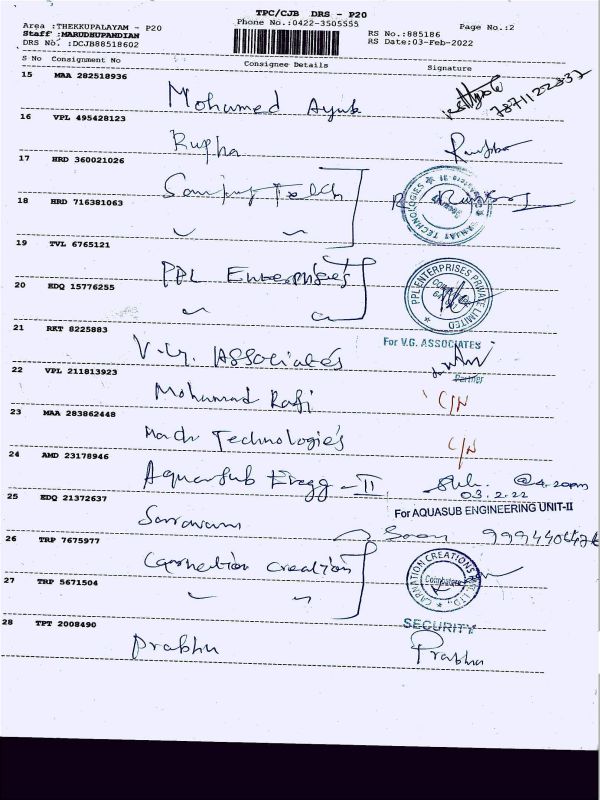 TPC/CJB DRS - P20
Area :THEKKUPALAYAM - P20
Phone No.:0422-3505555
Page No.:2
Staff :MARUDHUPANDIAN
RS No.:885186
DRS No. :DCJB88518602
RS Date:03-Feb-2022
S No Consignment No Consignee Details Signature
15 MAA 282518936
Mohamed Ayub
7871122837
16 VPL 495428123
Rupha
17 HRD 360021026
Sanjay Tech
18 HRD 716381063
SANJAY TECHNOLOGIES
19 TVL 6765121
PPL Enterprises
20 EDQ 15776255
PPL ENTERPRISES PRIVATE LIMITED
21 RKT 8225883
For V.G. ASSOCIATES
V.G. Associates
Partner
22 VPL 211813923
Mohamad Rafi C/N
23 MAA 283862448
Mach Technologies C/N
24 AMD 23178946
Aquasub Engg - II
@4.20pm
03.2.22
25 EDQ 21372637
For AQUASUB ENGINEERING UNIT-II
Saravanan
26 TRP 7675977
Carnation Creation
CARNATION CREATIONS PVT. LTD.
Coimbatore
27 TRP 5671504
SECURITY
28 TPT 2008490
Prabhu Prabhu